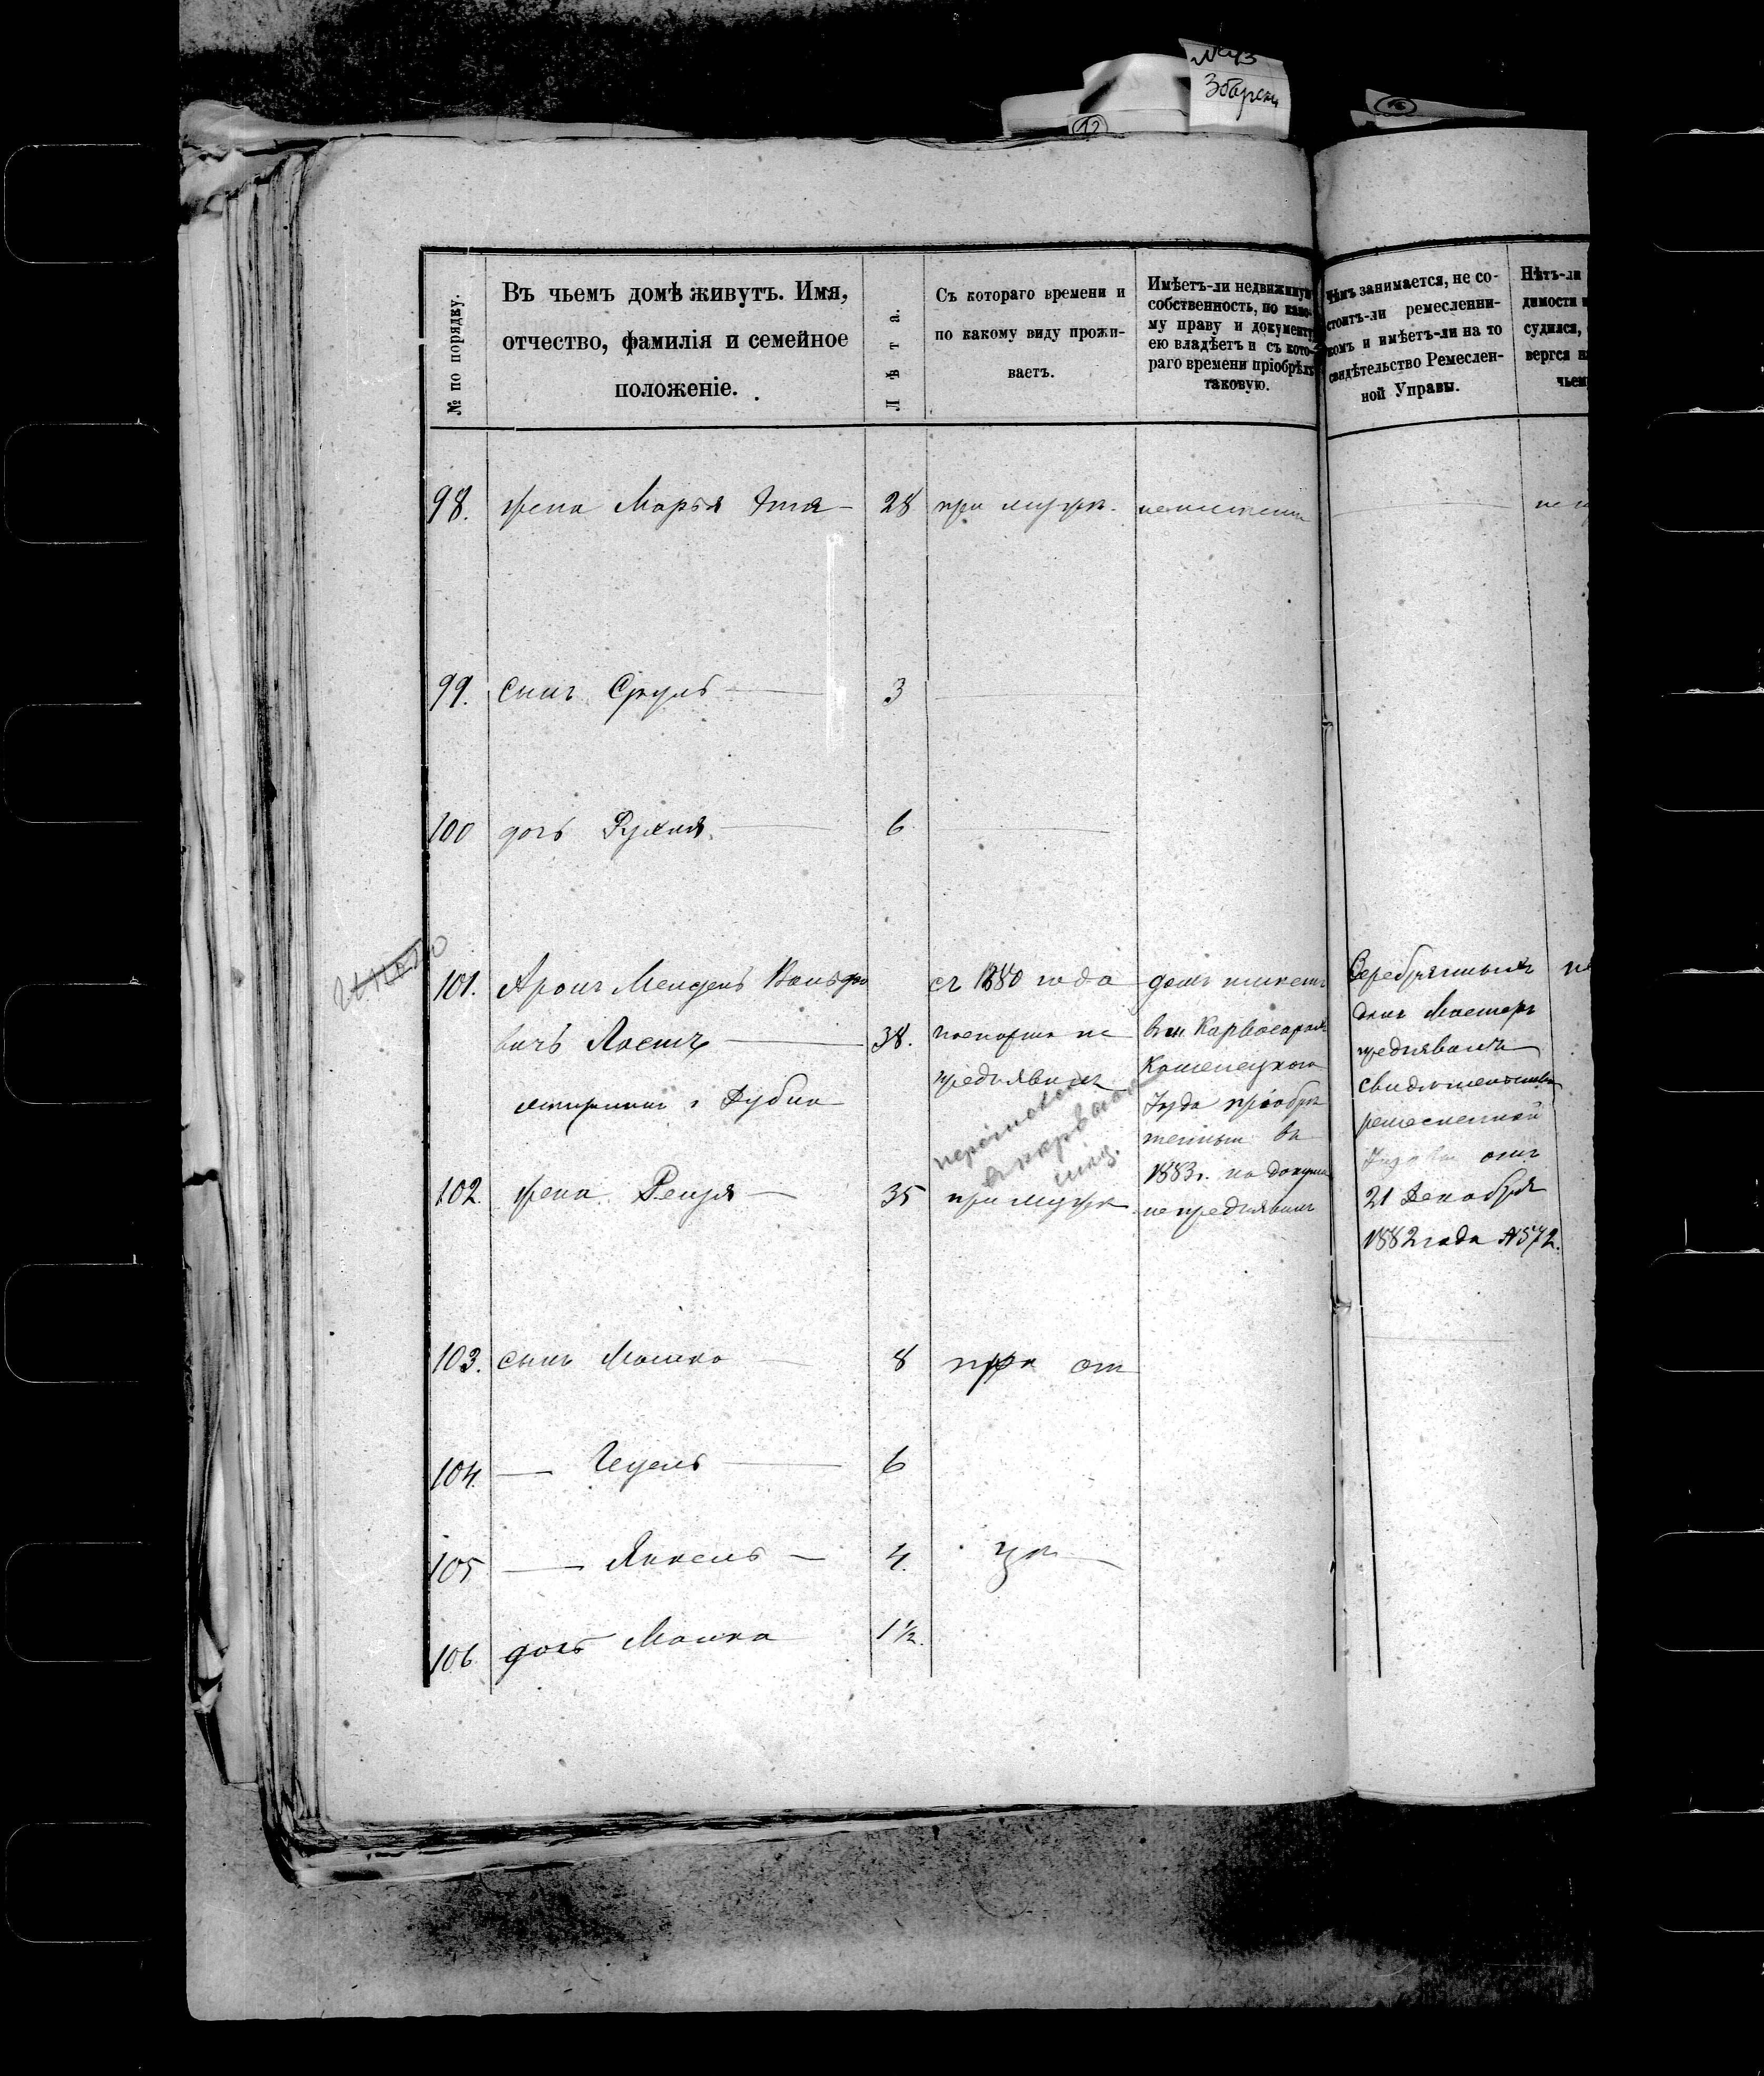 № 43
Збарски
12
16
№ по порядку.
Въ чьемъ домѣ живутъ. Имя,
отчество, фамилія и семейное
положеніе.
Лѣта.
Съ котораго времени и
по какому виду прожи-
ваетъ.
Имѣетъ-ли недвижиму
собственность, по како-
му праву и документу
ею владѣетъ и съ кото-
раго времени пріобрѣлъ
таковую.
Чѣмъ занимается, не со-
стоитъ-ли ремесленни-
комъ и имѣетъ-ли на то
свидѣтельство Ремеслен-
ной Управы.
Нѣтъ-ли
димости и
судился,
вергся н
чьем
98. жена Марья Этя 28 при мужѣ. неимѣетъ
99. сынъ Сруль 3
100 дочь Рухля 6
101. Аронъ Мендель Вольфо
вичъ 38.
г Дубна
съ 1880 года
паспорта не
предъявилъ
домъ имѣетъ
въ м. Карвосарахъ
Каменецкого
уѣзда пріобрѣ
тенный въ
1883г. но докуме
не предъявилъ
Серебрянныхъ
дѣлъ Мастеръ
предъявилъ
свидѣтельство
ремесленной
Управы отъ
21 Декабря
1882 года №572.
102. жена 35 при мужѣ
103. сынъ Мошко 8 при от
104. 6
105 Янкель 4. цѣ
106 дочь Малка 1½.